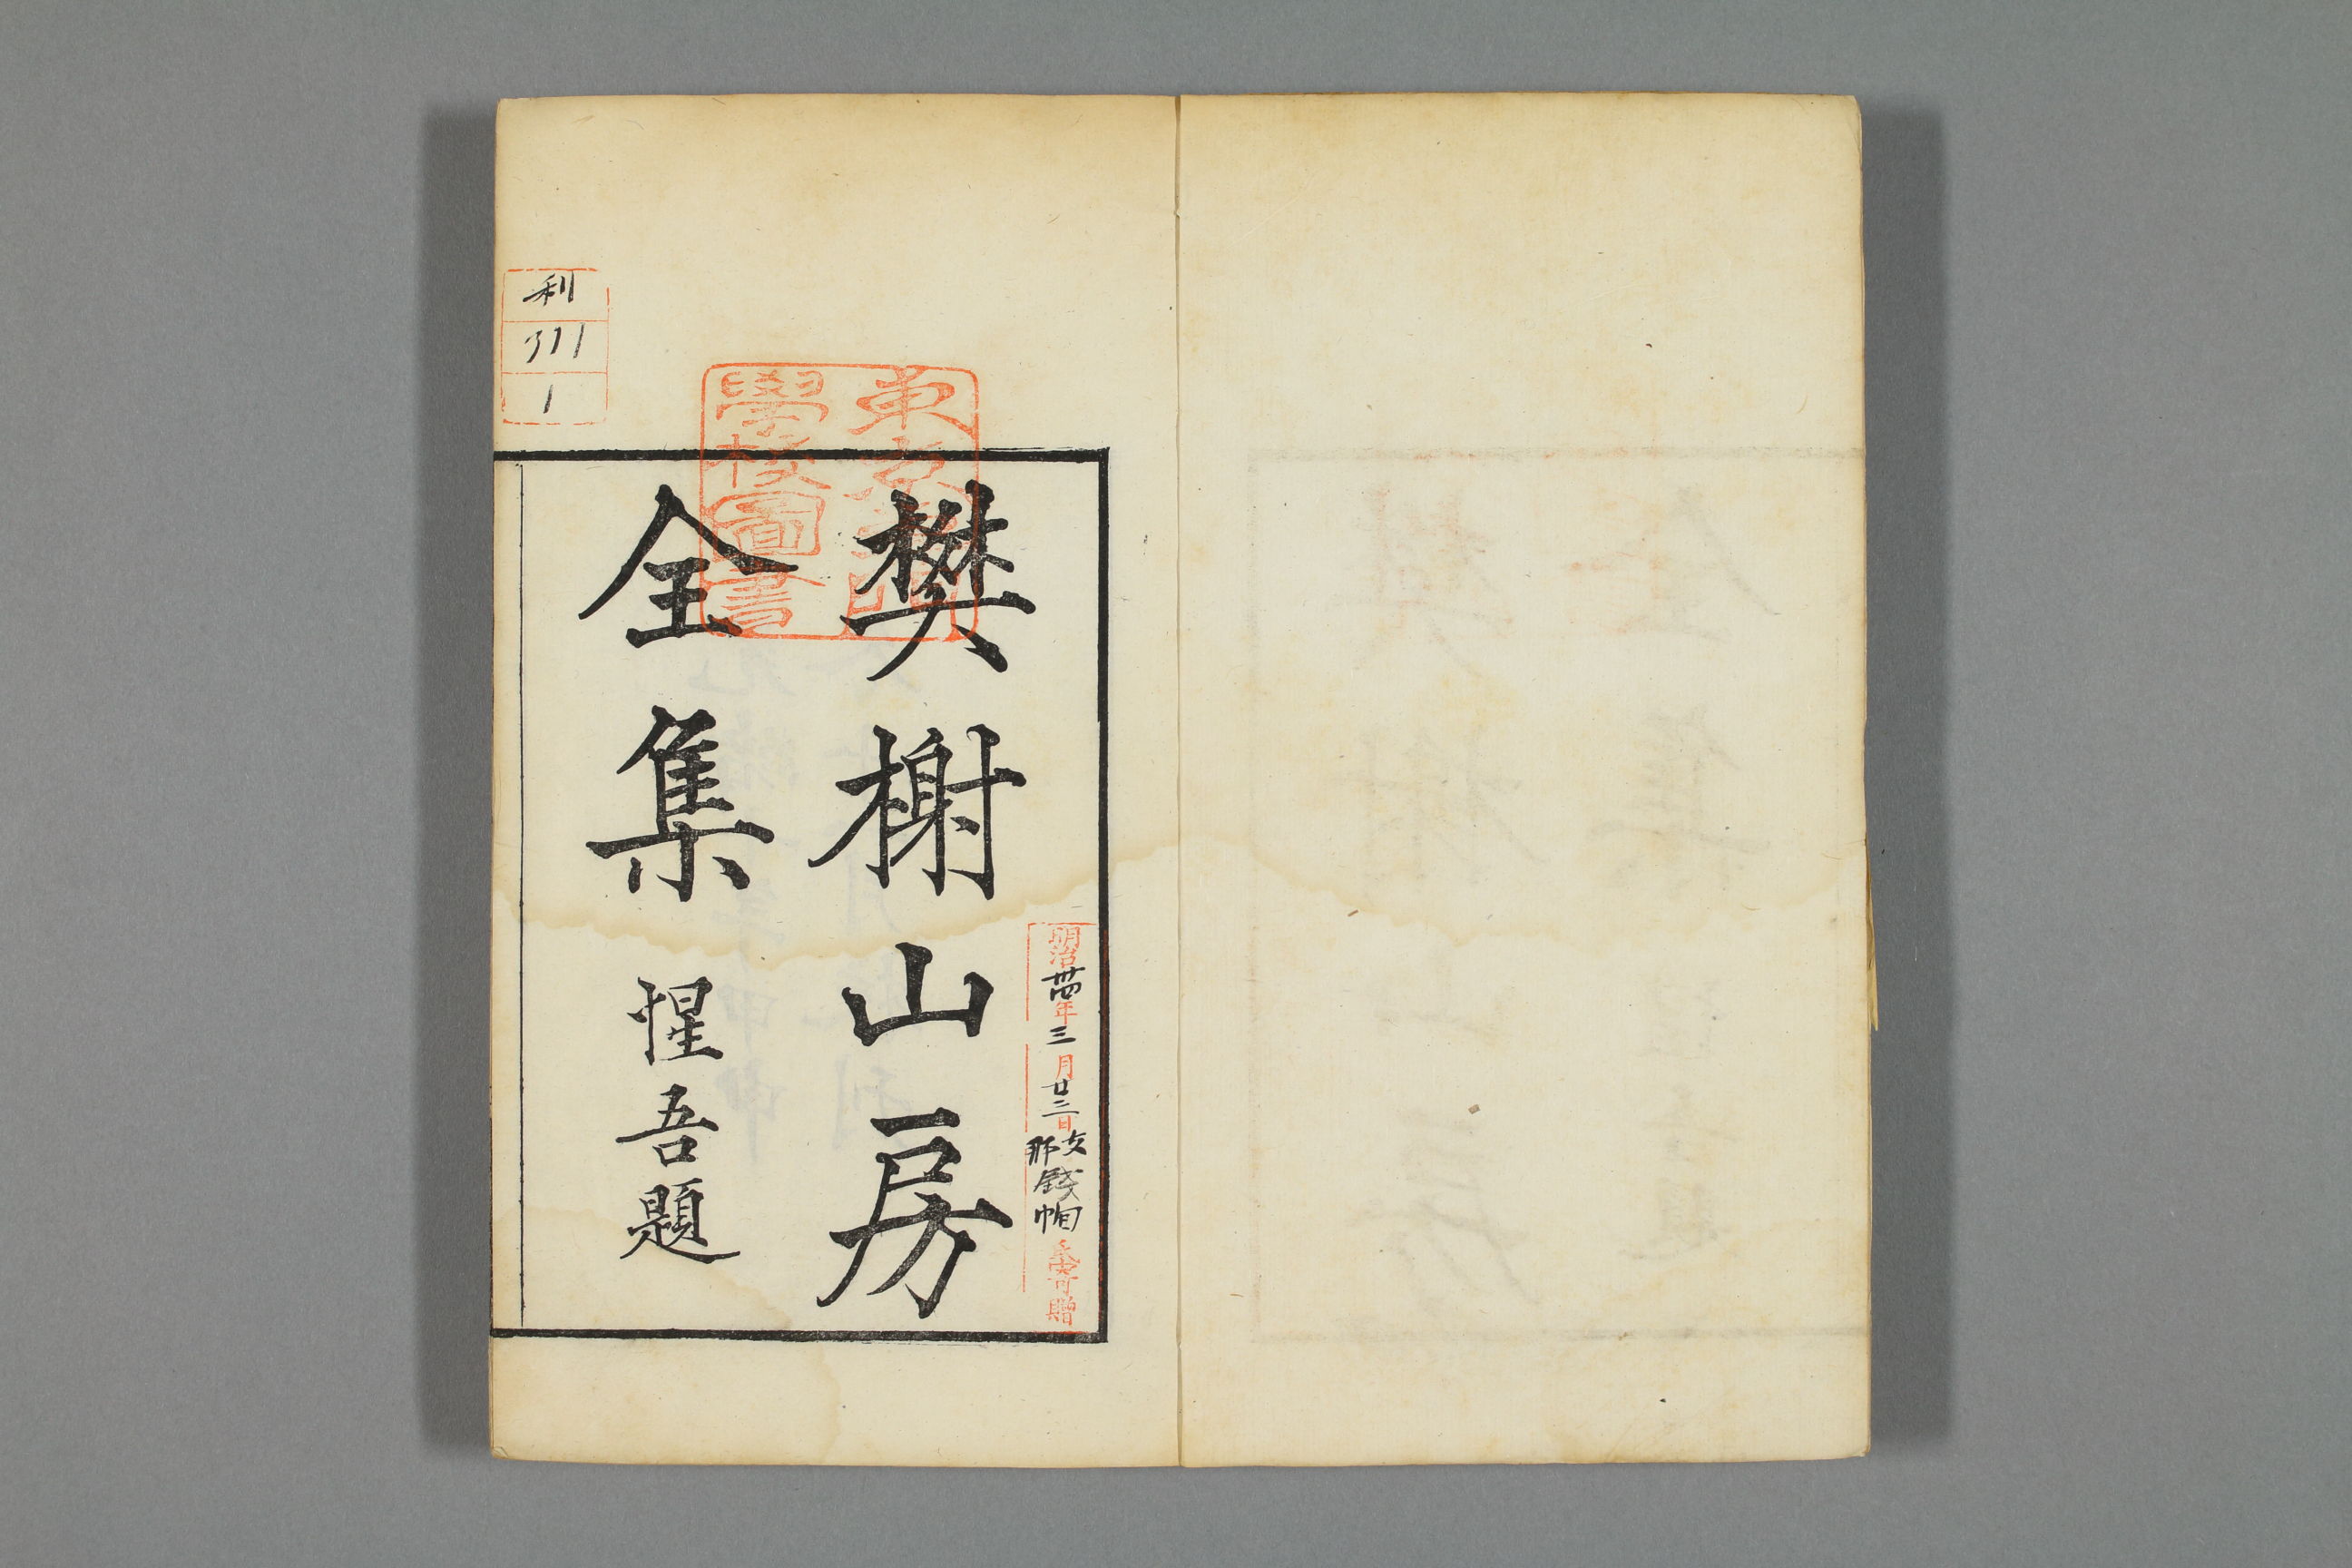 樊榭山房
全集
惺吾題
東京專門
學校圖書
明治卅四年三月廿三日
錢恂
氏寄贈
利
371
1